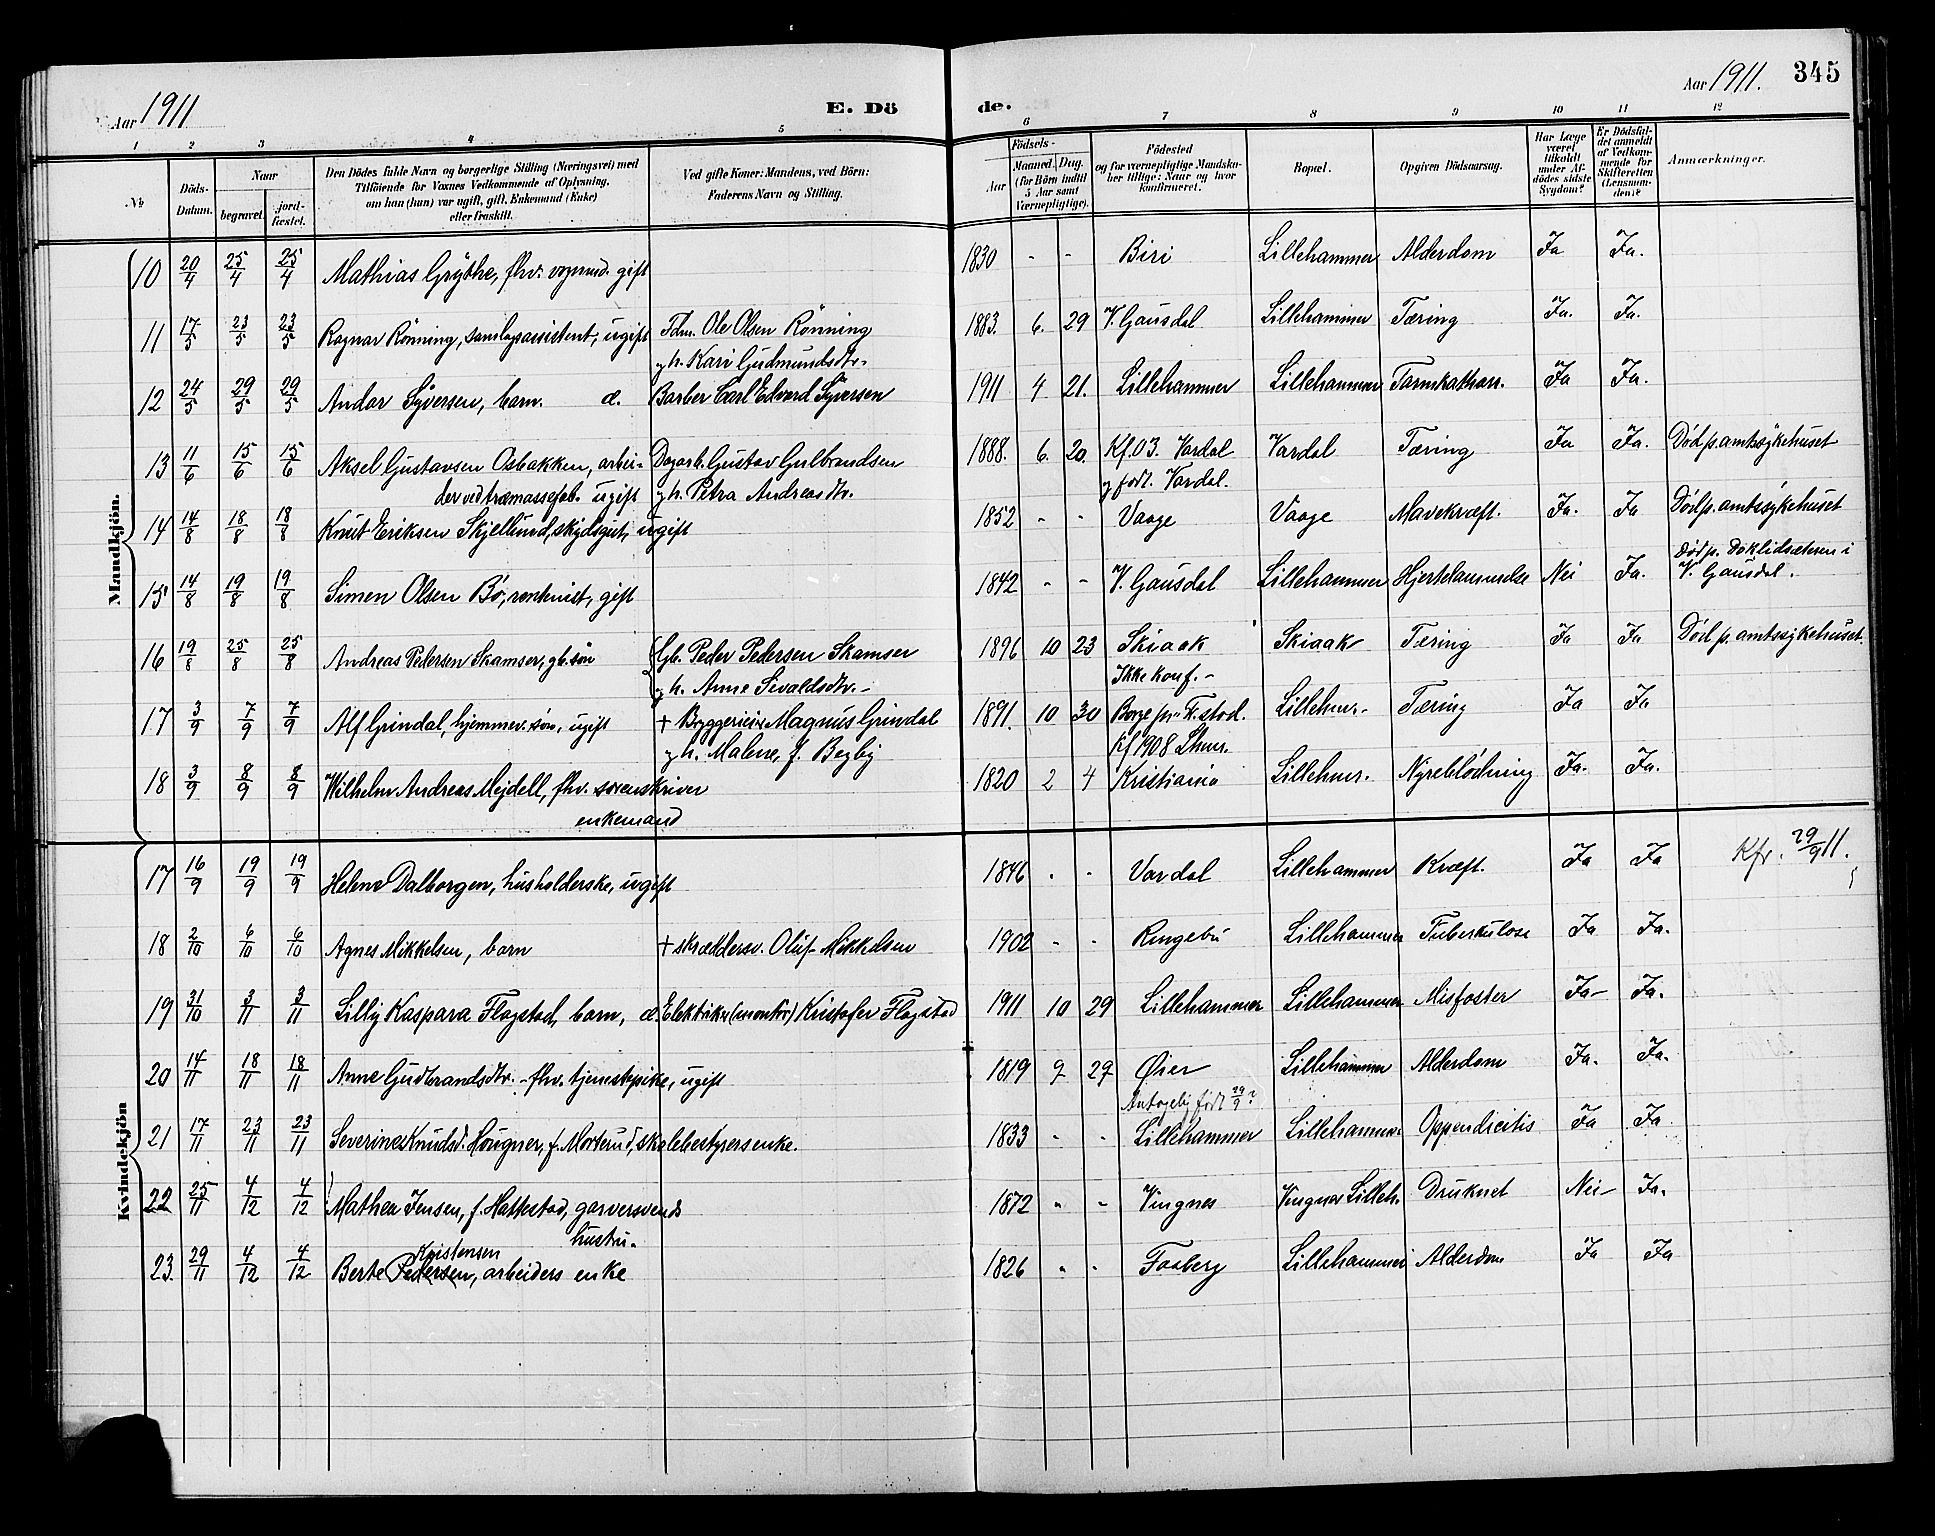 Aar 1911
E. Dö
de.
Aar 1911. 345
1 2 3 4 5 6 7 8 9 10 11 12
No
Döds-Datum.
Naar
begravet.
jord-fæstet.
Den Dödes fulde Navn og borgerlige Stilling (Næringsvei) med
Tilföiende for Voxnes Vedkommende af Oplysning,
om han (hun) var ugift, gift, Enkemand (Enke)
eller fraskilt.
Ved gifte Koner: Mandens, ved Börn:
Faderens Navn og Stilling.
Födsels-
Aar
Maaned. Dag.
(for Börn indtil
5 Aar samt
Værnepligtige).
Födested
og for værnepligtige Mandska-
ber tillige: Naar og hvor
konfirmeret.
Bopæl.
Opgiven Dödsaarsag.
Har Læge
været
tilkaldt
under Af-
dödes sidste
Sygdom?
Er Dödsfal-
det anmeldt
af Vedkom-
mende for
Skifteretten
(Lensman-
den)?
Anmærkninger.
Mandkjön.
10 20/4 25/4 25/4 Mathias Grythe, fhv. vognmd. gift 1830 - - Biri Lillehammer Alderdom Ja Ja.
11 17/5 23/5 23/5 Ragnar Rönning, samlagsassistent, ugift Fdm. Ole Olsen Rönning 1883. 6. 29 V. Gausdal Lillehammer Tæring Ja. Ja.
og h. Kari Gudmundsdtr.
12 24/5 29/5 29/5 Andor Syversen, barn. æ. Barber Carl Edvard Syversen 1911 4 21. Lillehammer Lillehammer Tarmkatharr. Ja Ja.
13 11/6 15/6 15/6 Aksel Gustavsen Osbakken, arbei- Dagarb. Gustav Gulbrandsen 1888. 6. 20. Kf. 03. Vardal Vardal Tæring Ja Ja. Död p. amtssykehuset
der ved træmassefab. ugift og h. Petra Andreasdtr. og födt. Vardal.
14 14/8 18/8 18/8 Knut Eriksen Skjellund, skydsgut, ugift 1852 - - Vaage Vaage Mavekræft. Ja. Ja Död p. amtssykehuset
15 14/8 19/8 19/8 Simen Olsen Bö, rentenist, gift 1842 - - V. Gausdal Lillehammer Hjertelammelse Nei Ja. Död p. Döklidsæteren i
V. Gausdal.
16 19/8 25/8 25/8 Andreas Pedersen Skamser, gb. sön Gb. Peder Pedersen Skamser 1896 10 23 Skiaak Skiaak Tæring Ja Ja Död p. amtssykehuset
og h. Anne Sivaldsdtr. Ikke konf.
17 3/9 7/9 7/9 Alf Grindal, hjemmev. sön, ugift + Byggerieier Magnus Grindal 1891. 10 30 Borge pr. Fr.stad. Lillehmr. Tæring Ja Ja
og h. Malene, f. Begby Kf 1908 Lhmr.
18 3/9 8/9 8/9 Wilhelm Andreas Mejdell, fhv. sorenskriver 1820 2 4 Kristiania Lillehmr. Nyreblödning Ja. Ja.
enkemand
Kvindekjön
17 16/9 19/9 19/9 Helene Dalborgen, husholderske, ugift 1846 - - Vardal Lillehammer Kræft. Ja Ja Kfr. 29/9 11.
18 2/10 6/10 6/10 Agnes Mikkelsen, barn + skræddersv. Oluf Mikkelsen 1902 - - Ringebu Lillehammer Tuberkulose Ja Ja.
19 31/10 3/11 3/11 Lilly Kaspara Flagstad, barn, æ. Elektriker (montör) Kristofer Flagstad 1911 10 29 Lillehammer Lillehammer Misfoster Ja Ja.
20 14/11 18/11 18/11 Anne Gudbrandsdtr. fhv. tjenestepike, ugift 1819 9 29 Øier Lillehammer Alderdom Ja. Ja.
Antagelig födt 29/9?
21 17/11 23/11 23/11 Severine Knudsd. Hougner, f. Mortrud, skolebestyrersenke. 1833 - - Lillehammer Lillehammer Appendicitis Ja Ja.
22 25/11 4/12 4/12 Mathea Jensen, f. Hattestad, garversvends 1872 - - Vingnes Vingnes Lilleh. Druknet Nei Ja.
hustru.
Kristensen
23. 29/11 4/12 4/12 Berte Pedersen, arbeiders enke 1826 - - Faaberg Lillehammer Alderdom Ja Ja